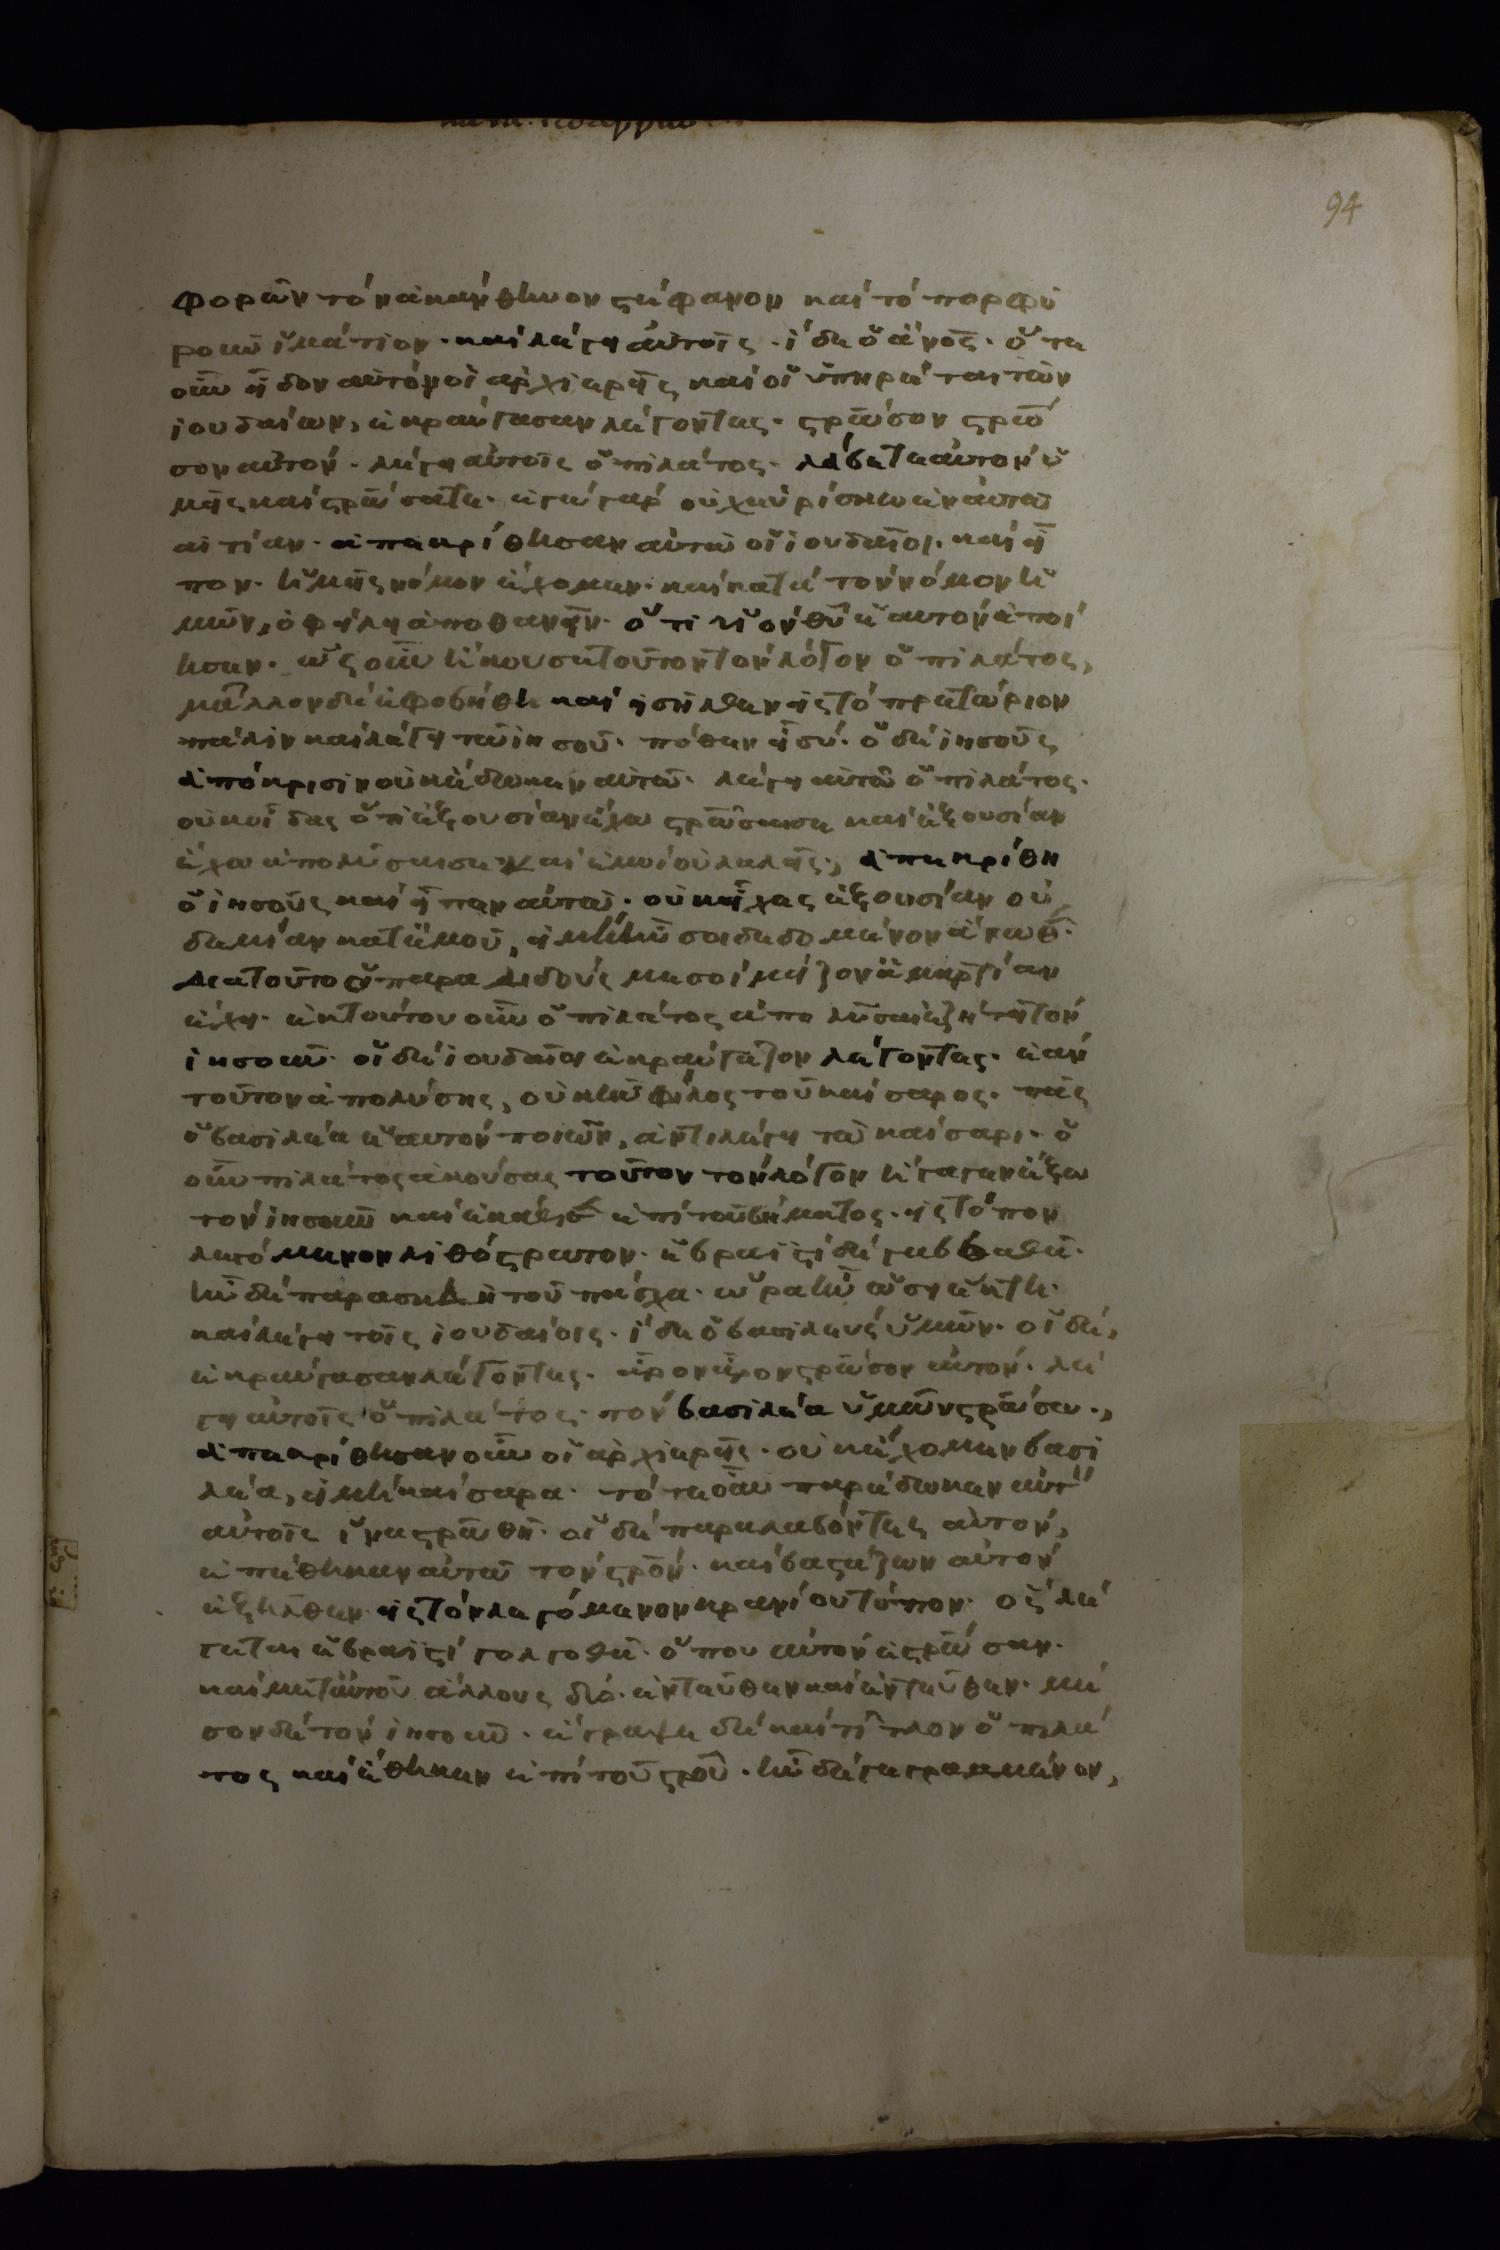 94
φορῶν τὸν ἀκάνθινον στέφανον καὶ τὸ πορφυ
ροῦν ἱμάτιον· καὶ λέγει αὐτοῖς· ἴδε ὁ ἄνος· ὅτε
οὖν εἶδον αὐτὸν οἱ ἀρχιερεῖς καὶ οἱ ὑπηρέται τῶν
ἰουδαίων, ἐκραύγασαν λέγοντες· στρωσον στρω
σον αὐτόν· λέγει αὐτοῖς ὁ πιλάτος· λάβετε αὐτὸν ὑ
μεῖς καὶ στρώσατε· ἐγὼ γὰρ οὐχ εὑρίσκω ἐν αὐτῶ
αἰτίαν· ἀπεκρίθησαν αὐτῶ οἱ ἰουδαῖοι· καὶ εἶ
πον· ἡμεῖς νόμον ἔχομεν· καὶ κατὰ τὸν νόμον ἡ
μῶν, ὀφείλει ἀποθανεῖν· ὅτι υἱὸν θυ ἑαυτὸν ἐποί
ησεν· ὡς οὖν ἤκουσε τοῦτον τὸν λόγον ὁ πιλάτος,
μᾶλλον δὲ ἐφοβήθη καὶ εἰσῆλθεν εἰς τὸ πρετώριον
πάλιν καὶ λέγει τῶ ἰησοῦ· πόθεν εἶ σύ· ὁ δὲ ἰησοῦς
ἀπόκρισιν οὐκ ἔδωκεν αὐτῶ· λέγει αὐτῶ ὁ πιλάτος·
οὐκ οἶδας ὅτι ἐξουσίαν ἔχω στρωσαι σε καὶ ἐξουσίαν
ἔχω ἀπολῦσαι σε καὶ ἐμοὶ οὐ λαλεῖς; ἀπεκρίθη
ὁ ἰησοῦς καὶ εἶπεν αὐτῶ· οὐκ εἶχες ἐξουσίαν οὐ
δεμίαν κατ' ἐμοῦ, εἰ μὴ ἦν σοι δεδομένον ἄνωθ·
διὰ τοῦτο ὁ παραδιδούς με σοὶ μείζον ἁμαρτίαν
ἔχει· ἐκ τούτου οὖν ὁ πιλάτος ἀπολῦσαι ἐζήτει τὸν
ἰησοῦν· οἱ δὲ ἰουδαῖοι ἐκραύγαζον λέγοντες· ἐὰν
τοῦτον ἀπολύσης, οὐκ εἶ φίλος τοῦ καίσαρος· πᾶς
ὁ βασιλέα ἑαυτὸν ποιῶν, ἀντιλέγει τῶ καίσαρι· ὁ
οὖν πιλάτος ἀκούσας τοῦτον τὸν λόγον ἤγαγεν ἔξω
τὸν ἰησοῦν καὶ ἐκάθισε ἐπὶ τοῦ βήματος· εἰς τόπον
λεγόμενον λιθόστρωτον· ἑβραϊστὶ δὲ γαββαθά·
ἦν δὲ παρασκευὴ τοῦ πάσχα· ὥρα ἦν ὡσεὶ ἕκτη·
καὶ λέγει τοῖς ἰουδαίοις· ἴδε ὁ βασιλεὺς ὑμῶν· οἱ δὲ,
ἐκραύγασαν λέγοντες· ἆρον ἆρον στρωσον αὐτόν· λέ
γει αὐτοῖς ὁ πιλάτος· τὸν βασιλέα ὑμῶν στρώσω·,
ἀπεκρίθησαν οὖν οἱ ἀρχιερεῖς· οὐκ ἔχομεν βασι
λέα, εἰ μὴ καίσαρα· τότε οὖν παρέδωκεν αὐτὸν
αὐτοῖς ἵνα στρωθῆ· οἱ δὲ παραλαβόντες αὐτὸν,
ἐπέθηκαν αὐτῶ τὸν στρον· καὶ βαστάζων αὐτὸν
ἐξῆλθεν εἰς τὸν λεγόμενον κρανίου τόπον· ὃς λέ
γεται ἑβραϊστὶ γολγοθά· ὅπου αὐτὸν ἐστρωσαν·
καὶ μετ' αὐτοῦ ἄλλους δύο· ἐντεῦθεν καὶ ἐντεῦθεν· μέ
σον δὲ τὸν ἰησοῦν· ἔγραψε δὲ καὶ τίτλον ὁ πιλά
τος καὶ ἔθηκεν ἐπὶ τοῦ στρου· ἦν δὲ γεγραμμένον,